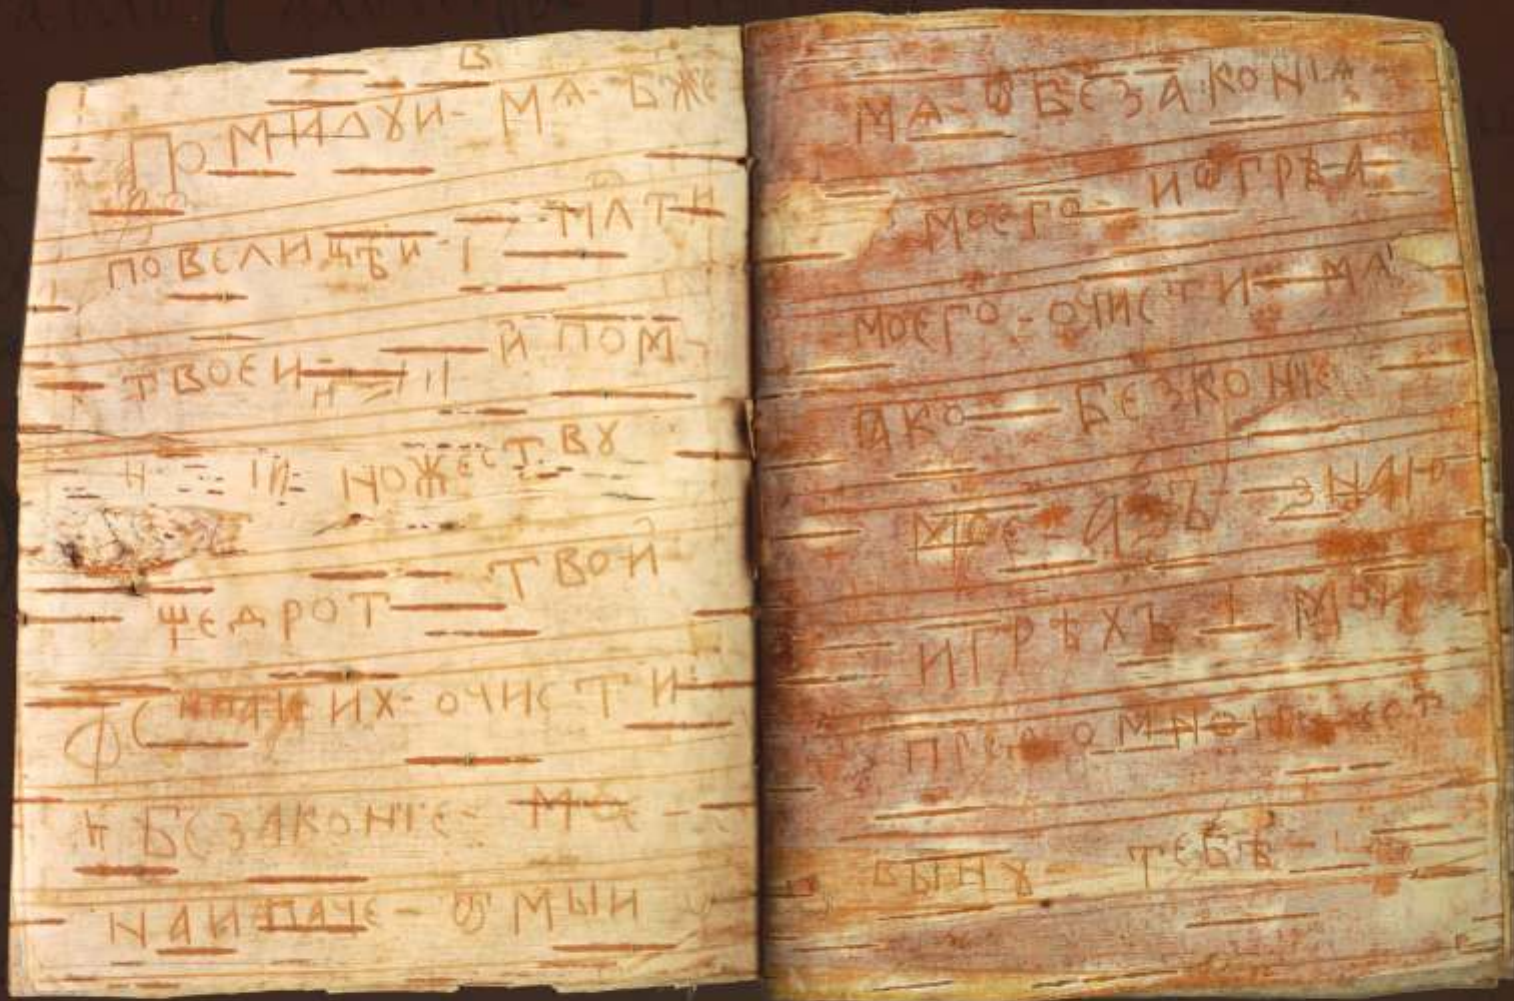 в
Помилуи - мѧ - бже
повелицѣи - млти
твоеи - и пом-
ножествꙋ
щедрот твои
очисти
и беззаконіе - мое -
наипаче - ѿмыи
мѧ - ѿ беззаконіѧ
моего - и ѿ грѣха
моего - очисти - мѧ
ꙗко беззконіе
мое - азъ знаю
и грѣхъ мои
предомною ест
вынꙋ - тебѣ -